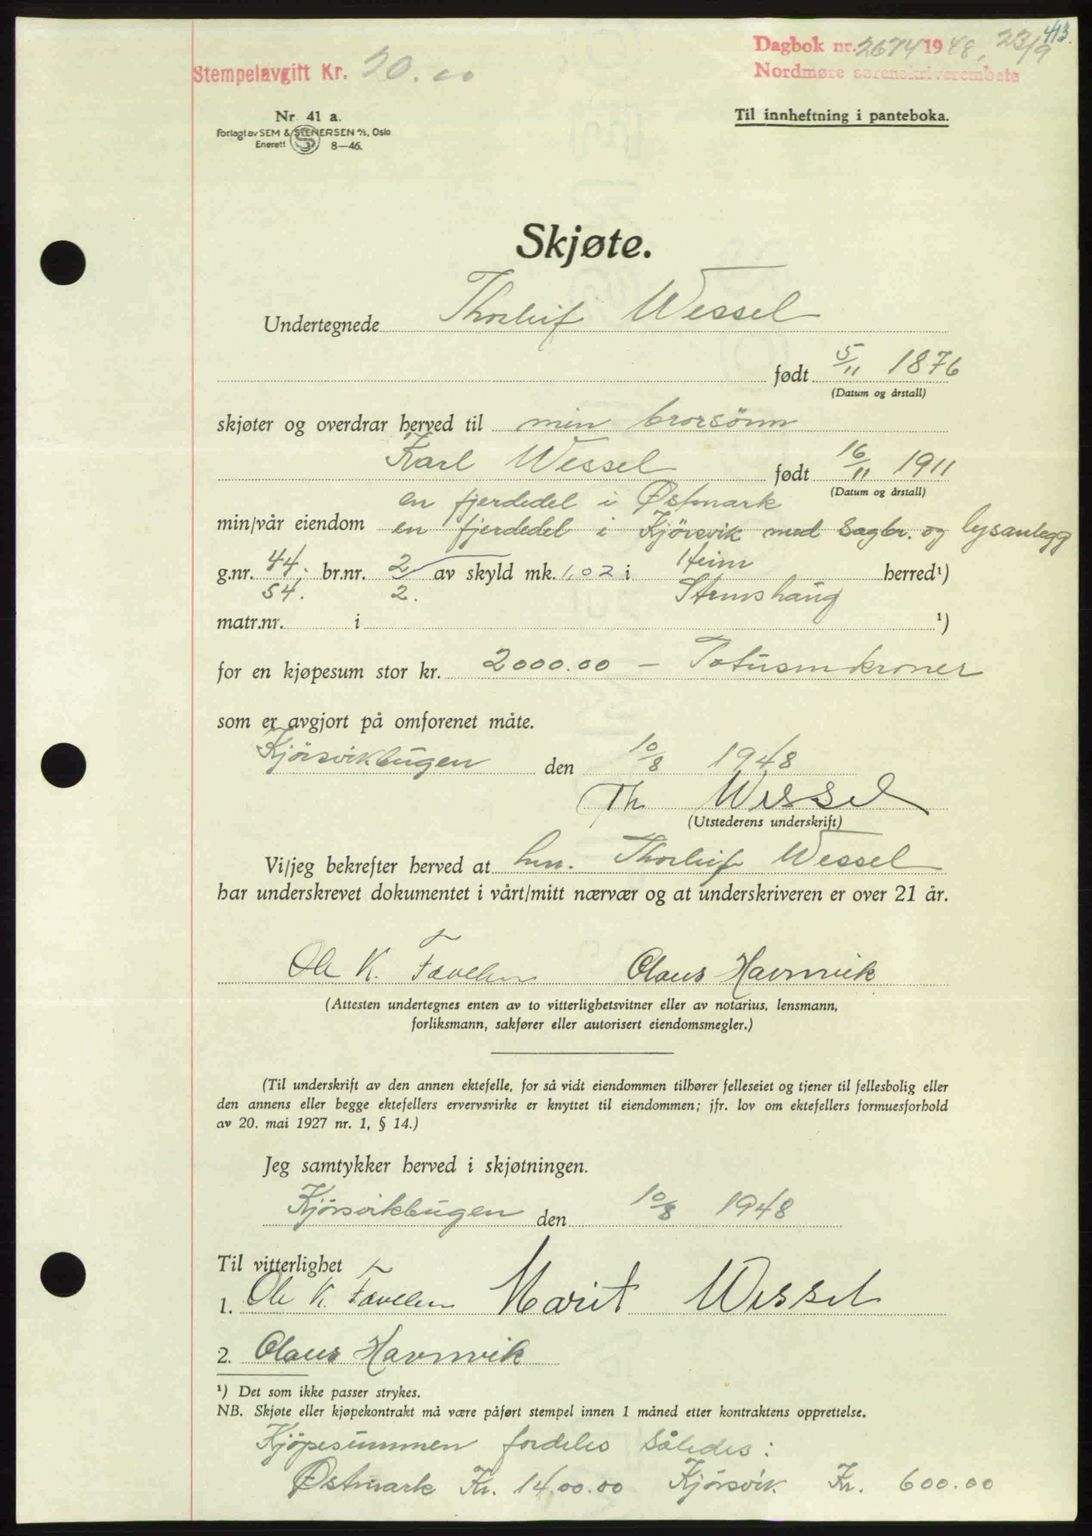 413.
Dagbok nr. 2674 1948, 23/9
Stempelavgift Kr. 20.00
Nordmøre sorenskriverembete
Nr. 41 a.
Forlagt av SEM & STENERSEN A/S, Oslo
Enerett S 8—46.
Til innheftning i panteboka.
Skjøte.
Undertegnede Thorleif Wessel
født 5/11 1876
(Datum og årstall)
skjøter og overdrar herved til min brorsønn
Karl Wessel født 16/11 1911
(Datum og årstall)
en fjerdedel i Østmark
min/vår eiendom en fjerdedel i Kjörsvik med Sagbr. og lysanlegg
g.nr. 44. br.nr. 2 av skyld mk. 1,02 i Heim herred¹)
54. 2. Stemshaug
matr.nr. i ¹)
for en kjøpesum stor kr. 2000.00 — Totusen kroner
som er avgjort på omforenet måte.
Kjörsvikbugen den 10/8 1948
Th Wessel
(Utstederens underskrift)
Vi/jeg bekrefter herved at hr. Thorleif Wessel
har underskrevet dokumentet i vårt/mitt nærvær og at underskriveren er over 21 år.
Ole K. Claus Havnvik
(Attesten undertegnes enten av to vitterlighetsvitner eller av notarius, lensmann,
forliksmann, sakfører eller autorisert eiendomsmegler.)
(Til underskrift av den annen ektefelle, for så vidt eiendommen tilhører felleseiet og tjener til fellesbolig eller
den annens eller begge ektefellers ervervsvirke er knyttet til eiendommen; jfr. lov om ektefellers formuesforhold
av 20. mai 1927 nr. 1, § 14.)
Jeg samtykker herved i skjøtningen.
Kjörsvikbugen den 10/8 1948
Til vitterlighet
1. Ole K. Marit Wessel
2. Claus Havnvik
¹) Det som ikke passer strykes.
NB. Skjøte eller kjøpekontrakt må være påført stempel innen 1 måned etter kontraktens opprettelse.
Kjöpesummen fordeles således:
Østmark Kr. 1400.00 Kjörsvik Kr. 600.00